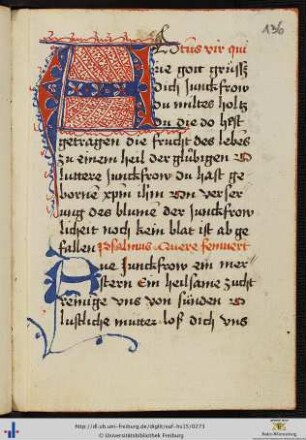 136
Beatus vir qui
Aue gott grüssz
dich Junckfrow
du miltes holtz
du die do hest
getragen die frucht des lebes
zu einem heil der glubigen O
luttere Junckfrow du hast ge
bornen xpm ihm von verser
ung des blumen der Junckfrow
licheit noch kein blat ist abge
fallen Psalmus Quere fremuert
Aue Junckfrow ein mer
stern Ein heilsame zucht
reinige vns von sünden O
lustliche muter los dich vns
http://dl.ub.uni-freiburg.de/diglit/oaf-hs15/0273
© Universitätsbibliothek Freiburg
Baden-Württemberg